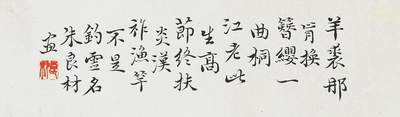 羊裘那
肯換
簪纓一
曲桐
江老此
生高
節終扶
炎漢
祚漁竿
不是
釣雪名
朱良材
画